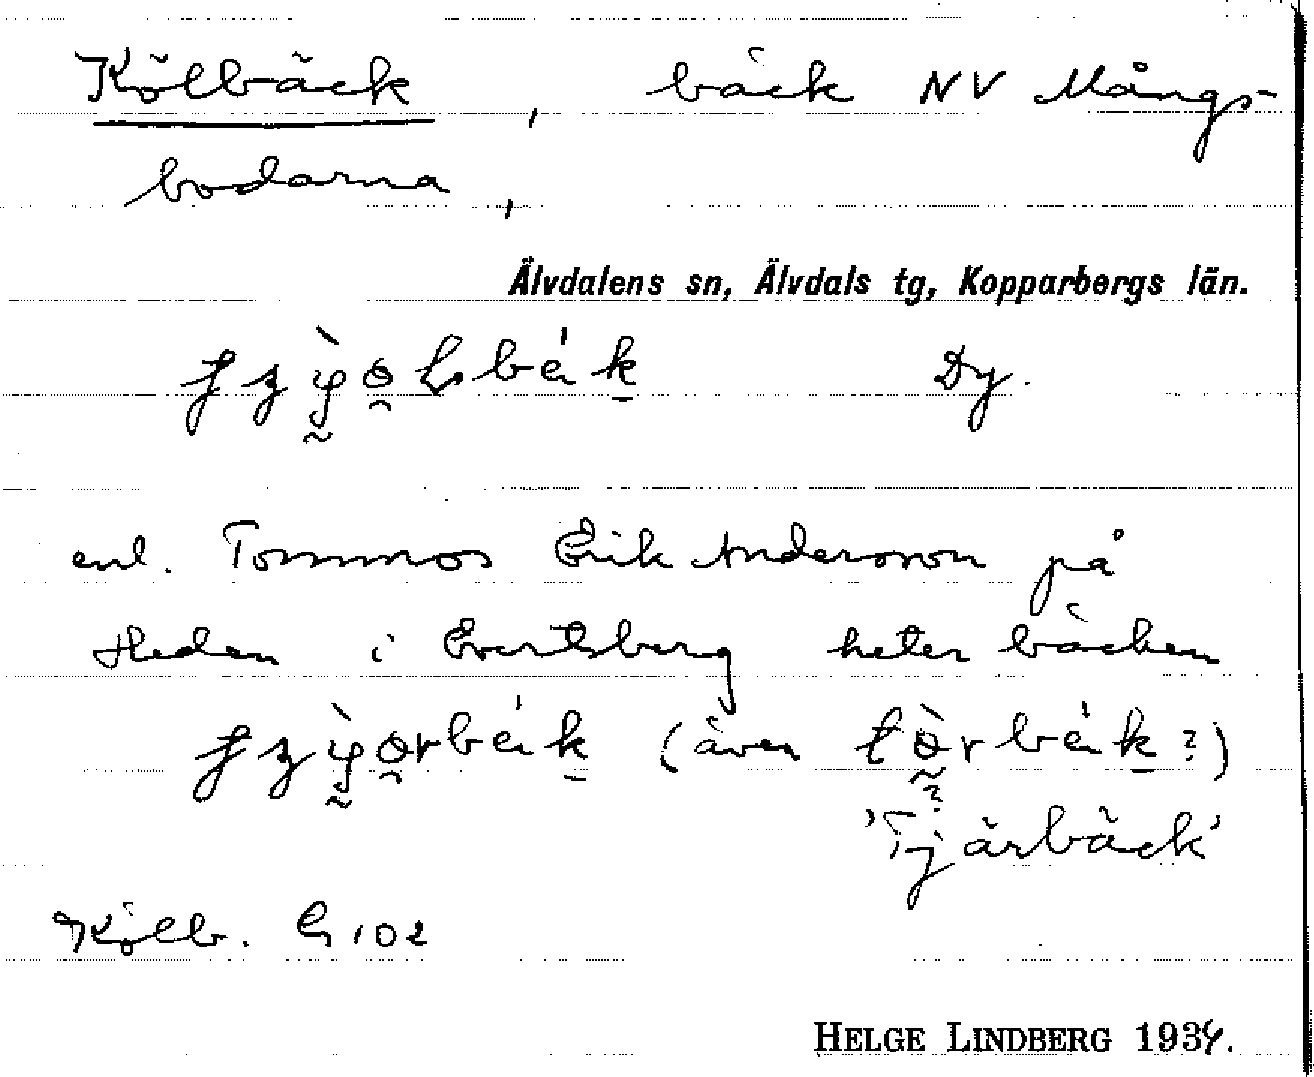 Kölbäck, bäck NV Mångs-
bodarna,
Älvdalens sn, Älvdals tg, Kopparbergs län.
Dy.
enl. Tommos Erik Andersson på
Heden i Evertsberg heter bäcken
(även ?)
'Tjärbäck'
Kölb. G 102
HELGE LINDBERG 1934.